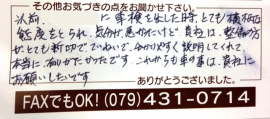 その他お気づきの点をお聞かせ下さい。
以前、 に車検を出した時、とても横柄な
態度をとられ、気分が悪かったけど貴社は、整備の方
がとても親切でていねいで、分かりやすく説明してくれて
本当に、ありがたかったです。これからも車の事は、貴社に
お願いしたいです
ありがとうございました。
FAXでもOK! (079)431-0714